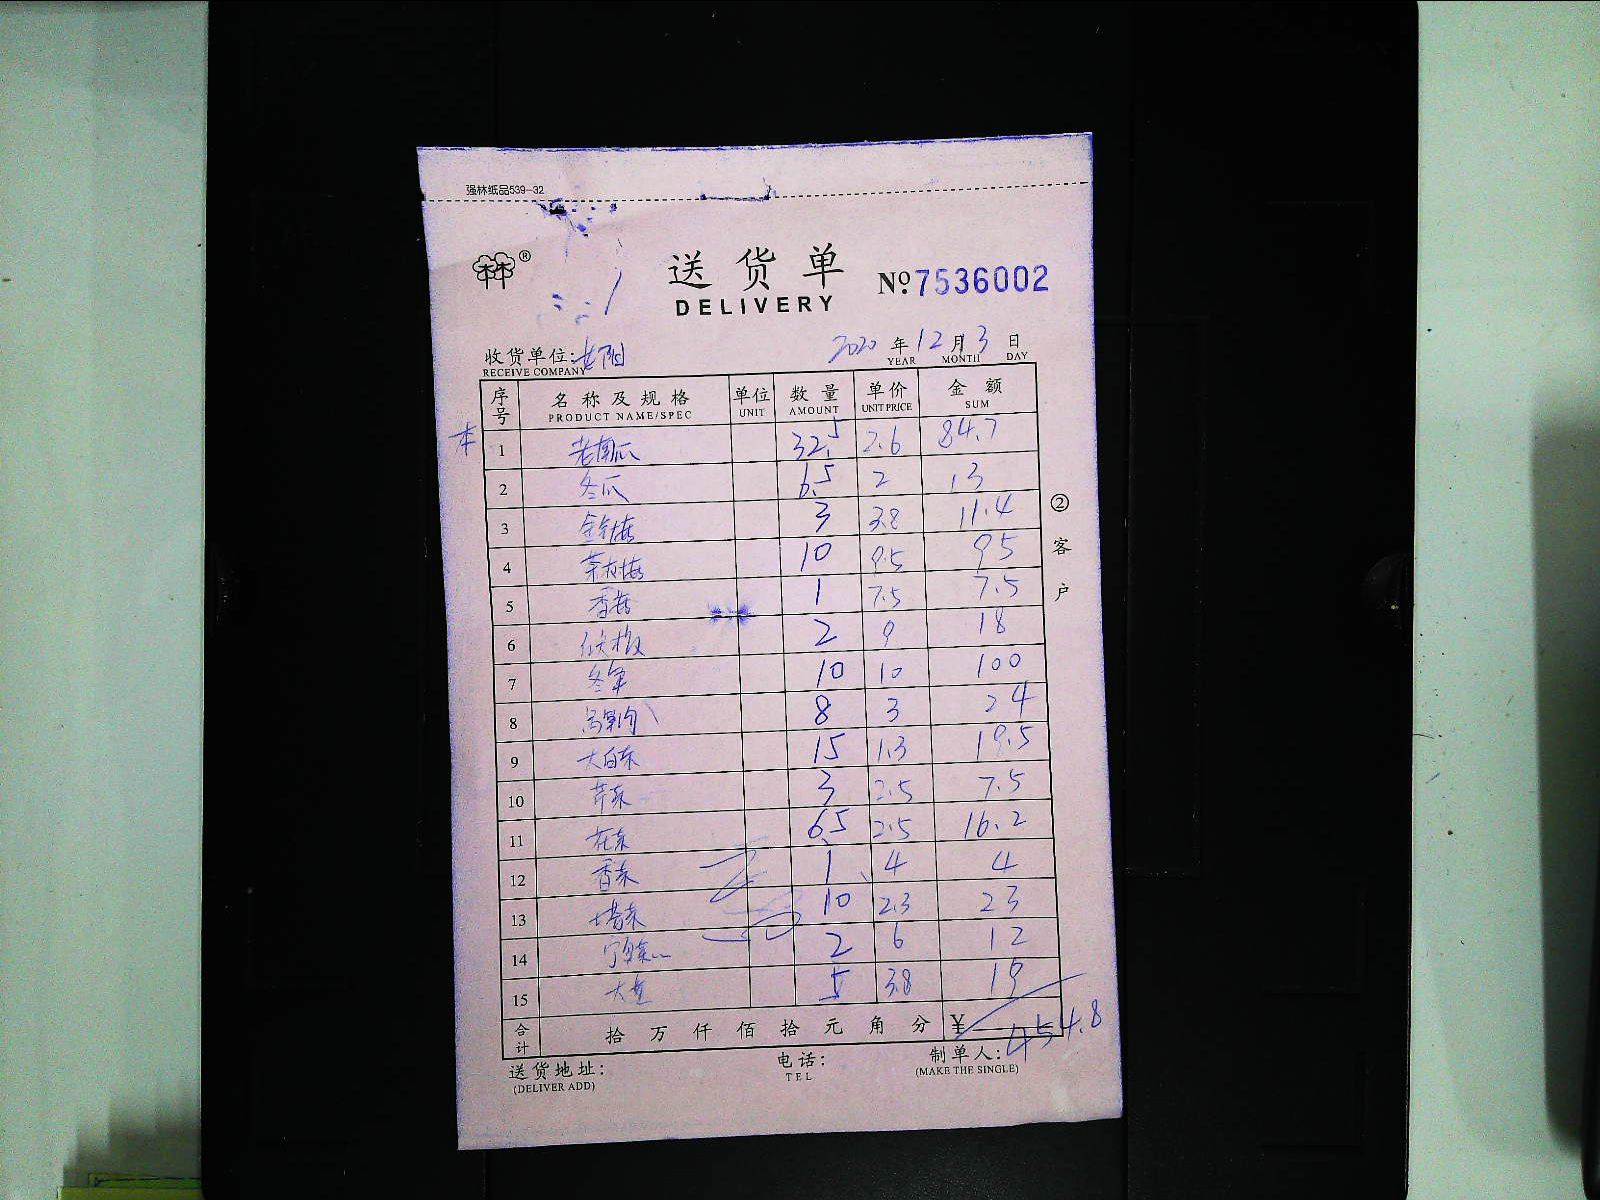 强林纸品539-32
林林®
送货单
DELIVERY
№7536002
收货单位:
RECEIVE COMPANY
2020 年 12 月 3 日
YEAR MONTH DAY
序号 名称及规格 单位 数量 单价 金额
PRODUCT NAME/SPEC UNIT AMOUNT UNIT PRICE SUM
本 1 老南瓜 32.5 2.6 84.7
2 冬瓜 6.5 2 13
3 金针菇 3 3.8 11.4
4 茶树菇 10 9.5 95
5 香菇 1 7.5 7.5
6 2 9 18
7 冬笋 10 10 100
8 莴笋 8 3 24
9 大白菜 15 1.3 19.5
10 芹菜 3 2.5 7.5
11 花菜 6.5 2.5 16.2
12 香菜 1 4 4
13 塔菜 10 2.3 23
14 2 6 12
15 大 5 3.8 19
合计 拾 万 仟 佰 拾 元 角 分 ¥ 454.8
送货地址: 电话: 制单人:
(DELIVER ADD) TEL (MAKE THE SINGLE)
②客户